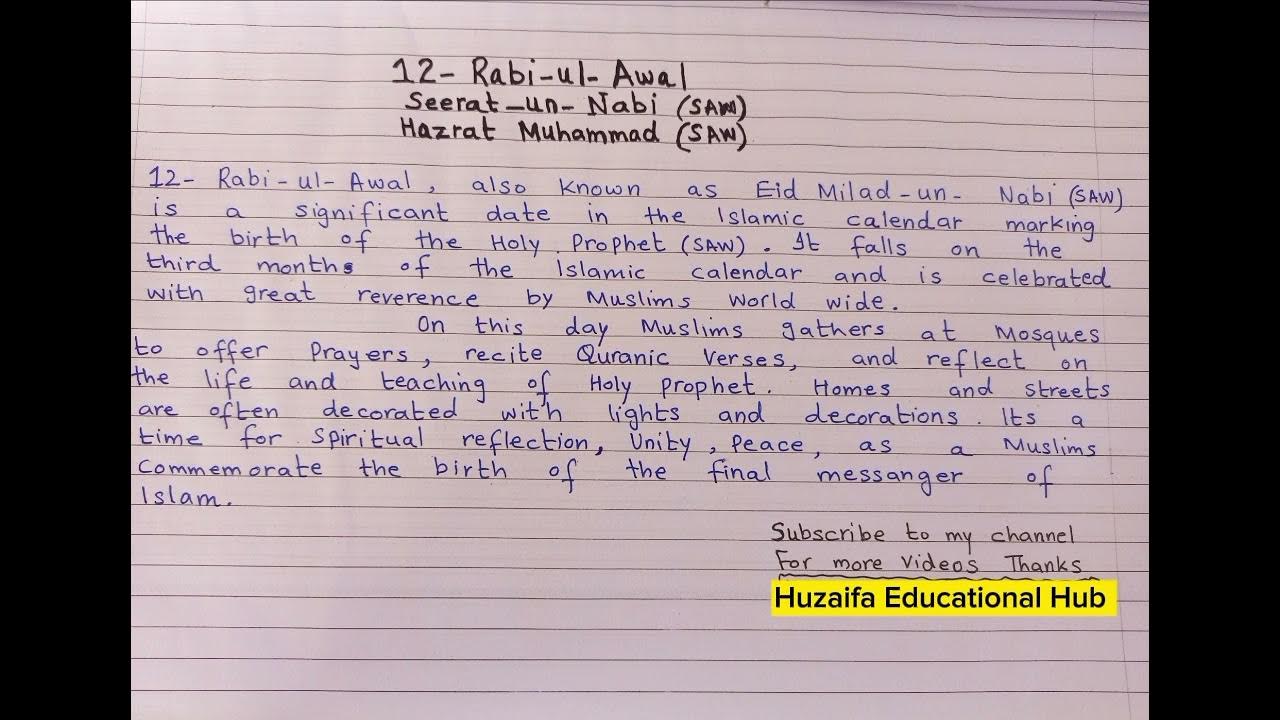 12- Rabi-ul-Awal
Seerat-un-Nabi (SAW)
Hazrat Muhammad (SAW)
12- Rabi-ul-Awal, also known as Eid Milad-un- Nabi (SAW)
is a significant date in the Islamic calendar marking
the birth of the Holy Prophet (SAW). It falls on the
third months of the Islamic calendar and is celebrated
with great reverence by Muslims world wide.
On this day Muslims gathers at Mosques
to offer Prayers, recite Quranic Verses, and reflect on
the life and teaching of Holy prophet. Homes and streets
are often decorated with lights and decorations. Its a
time for spiritual reflection, Unity, Peace, as a Muslims
Commemorate the birth of the final messanger of
Islam.
Subscribe to my channel
For more videos Thanks
Huzaifa Educational Hub